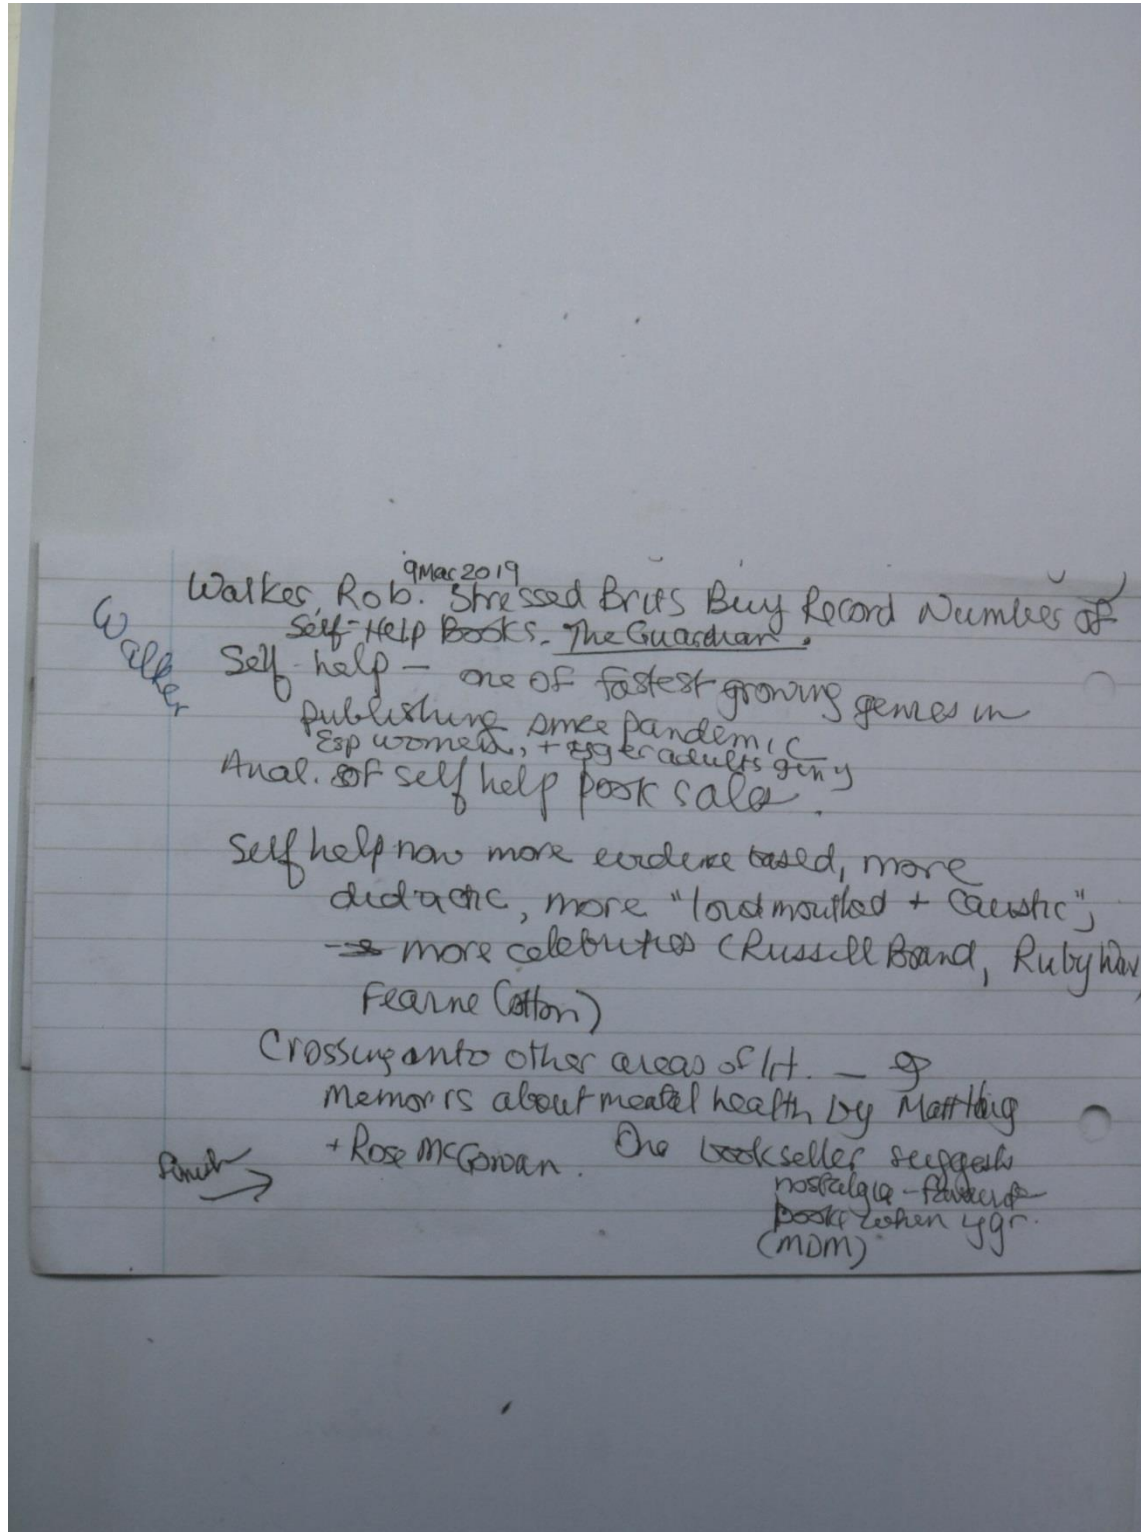 9Mar2019
Walker, Rob. Stressed Brits Buy Record Number of
Self-Help Books. The Guardian.
Walker
Self-help – one of fastest growing genres in
publishing since pandemic
Esp women, + yger adults
Anal. of self help book sales.
Self help now more evidence based, more
didactic, more "loudmouthed + caustic",
more celebrities (Russell Brand, Ruby Wax,
Fearne Cotton)
Crossing onto other areas of lit. –
Memoirs about mental health by Matt Haig
+ Rose McGowan. One bookseller suggests
nostalgia –
books when ygr.
(MDM)